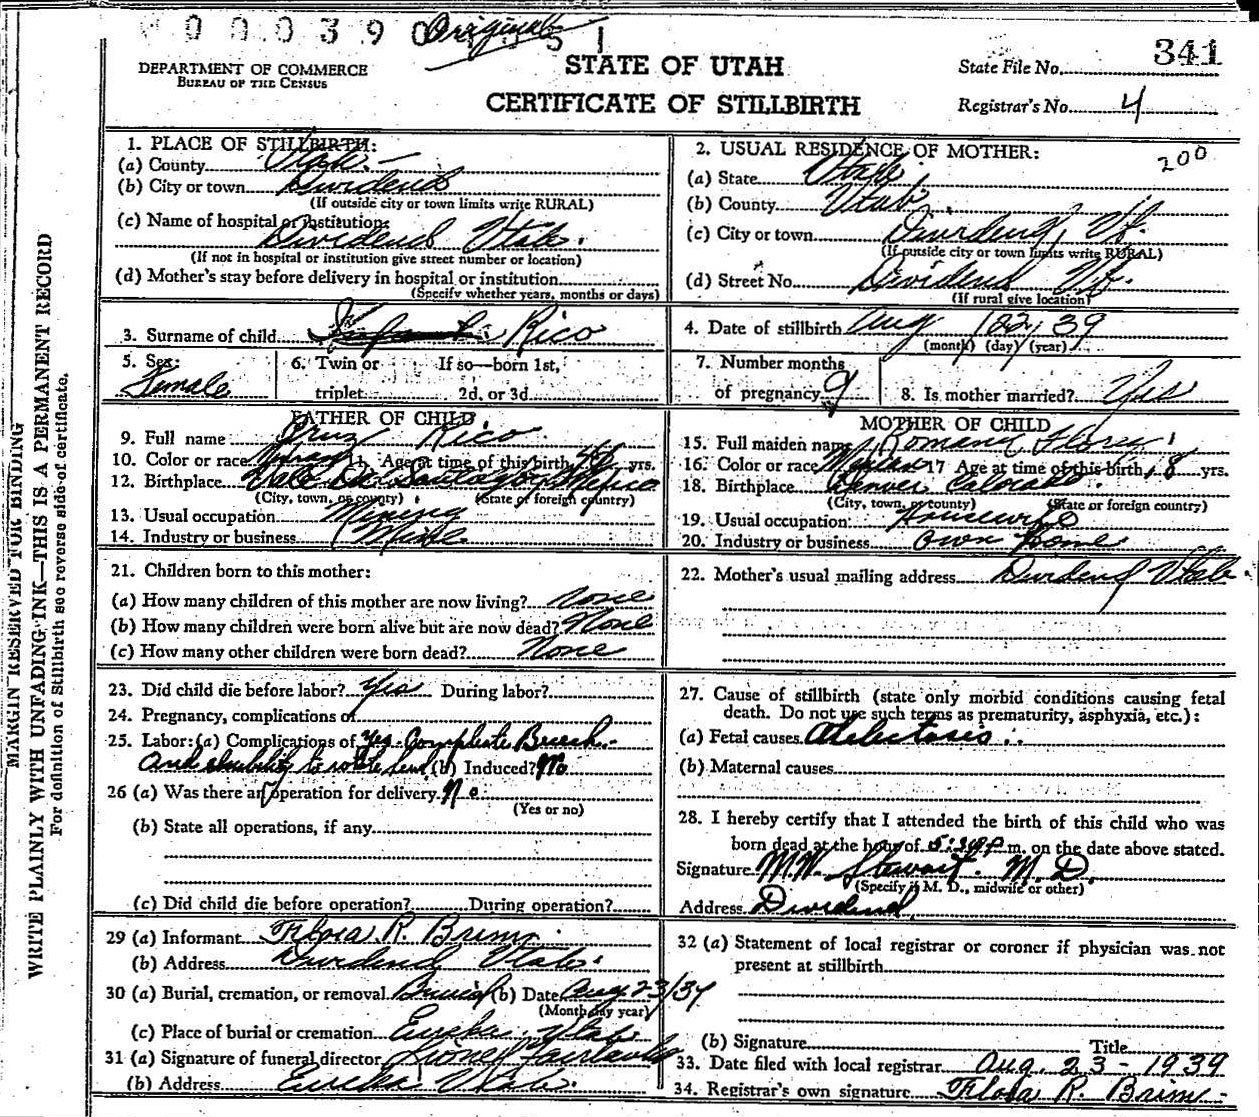 Original
0 0 0 3 9 0 5 1
DEPARTMENT OF COMMERCE
BUREAU OF THE CENSUS
STATE OF UTAH
CERTIFICATE OF STILLBIRTH
State File No. 341
Registrar's No. 4
MARGIN RESERVED FOR BINDING
WRITE PLAINLY WITH UNFADING INK—THIS IS A PERMANENT RECORD
For definition of Stillbirth see reverse side of certificate.
1. PLACE OF STILLBIRTH:
(a) County Utah
(b) City or town Dividend
(If outside city or town limits write RURAL)
(c) Name of hospital or institution:
Dividend Utah.
(If not in hospital or institution give street number or location)
(d) Mother's stay before delivery in hospital or institution
(Specify whether years, months or days)
2. USUAL RESIDENCE OF MOTHER: 200
(a) State Utah
(b) County Utah
(c) City or town Dividend, Ut.
(If outside city or town limits write RURAL)
(d) Street No. Dividend Ut.
(If rural give location)
3. Surname of child Rico
4. Date of stillbirth Aug 22, 39
(month) (day) (year)
5. Sex: Female
6. Twin or triplet If so—born 1st, 2d, or 3d
7. Number months of pregnancy 9
8. Is mother married? Yes
FATHER OF CHILD
9. Full name Cruz Rico
10. Color or race 11. Age at time of this birth 46 yrs.
12. Birthplace Valle De Santiago, Mexico
(City, town, or county) (State or foreign country)
13. Usual occupation Mining
14. Industry or business Mine
MOTHER OF CHILD
15. Full maiden name Flores
16. Color or race 17 Age at time of this birth 18 yrs.
18. Birthplace Denver Colorado.
(City, town, or county) (State or foreign country)
19. Usual occupation: Housewife
20. Industry or business Own home
21. Children born to this mother:
(a) How many children of this mother are now living? None
(b) How many children were born alive but are now dead? None
(c) How many other children were born dead? None
22. Mother's usual mailing address Dividend Utah
23. Did child die before labor? Yes During labor?
24. Pregnancy, complications of
25. Labor: (a) Complications of Yes. Complete Breech
And to rotate (b) Induced? No
26 (a) Was there an operation for delivery No
(Yes or no)
(b) State all operations, if any
(c) Did child die before operation? During operation?
27. Cause of stillbirth (state only morbid conditions causing fetal
death. Do not use such terms as prematurity, asphyxia, etc.):
(a) Fetal causes Atelectasis
(b) Maternal causes
28. I hereby certify that I attended the birth of this child who was
born dead at the hour of 5:30 P m. on the date above stated.
Signature M.W. Stewart. M.D.
(Specify if M. D., midwife or other)
Address Dividend
29 (a) Informant Flora R. Brim
(b) Address Dividend Utah.
30 (a) Burial, cremation, or removal Burial (b) Date Aug 23/39
(Month day year)
(c) Place of burial or cremation Eureka Utah
31 (a) Signature of funeral director
(b) Address Eureka Utah.
32 (a) Statement of local registrar or coroner if physician was not
present at stillbirth
(b) Signature Title
33. Date filed with local registrar Aug. 23 - 1939
34. Registrar's own signature Flora R. Brim